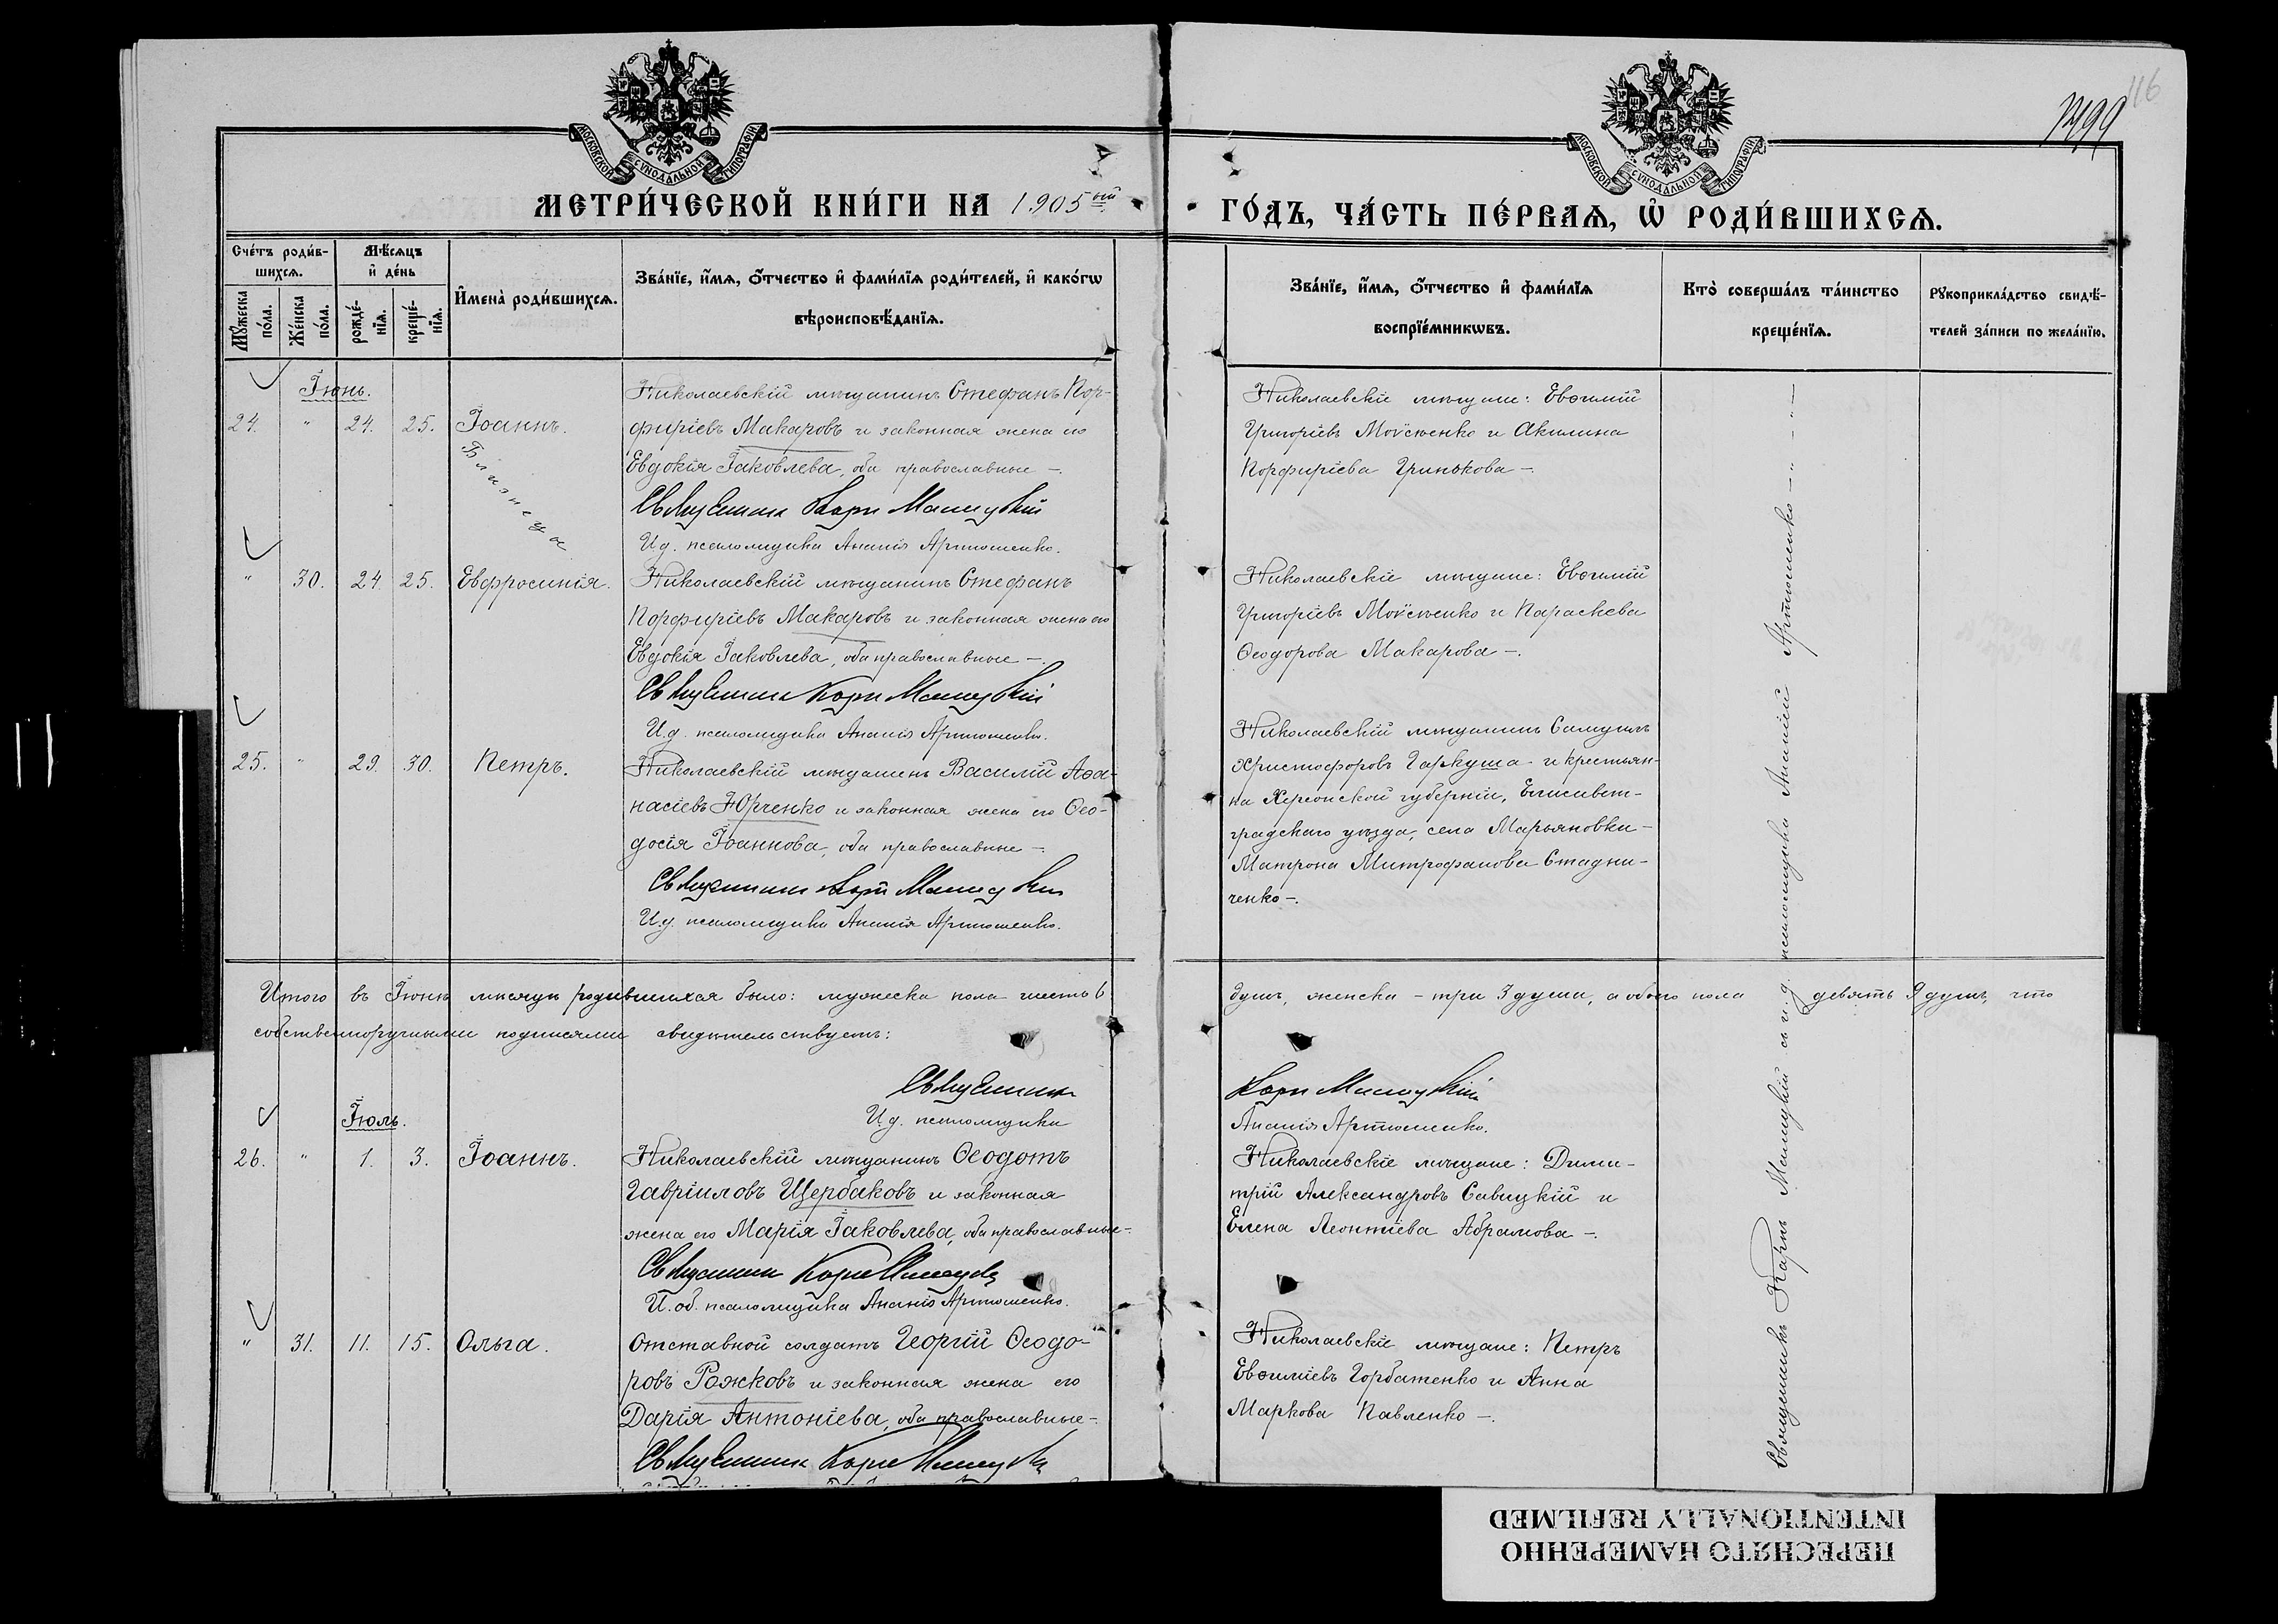 116
1499
МОСКОВСКОЙ СѴНОДАЛЬНОЙ ТИПОГРАФІИ
МОСКОВСКОЙ СѴНОДАЛЬНОЙ ТИПОГРАФІИ
МЕТРИ́ЧЕСКОЙ КНИ́ГИ НА 1905 ый
ГО́ДЪ, ЧА́СТЬ ПЕ́РВАѦ, Ѽ РОДИ́ВШИХСѦ.
Сче́тъ роди́в-
шихсѧ.
Мꙋ́жеска по́ла.
Же́нска по́ла.
Мѣ́сѧцъ
и҆ де́нь
рожде́-нїѧ.
креще́-нїѧ.
И҆мена̀ роди́вшихсѧ.
Зва́нїе, и҆́мѧ, ѻ҆́тчество и҆ фами́лїѧ роди́телей, и҆ како́гѡ
вѣроисповѣ́данїѧ.
Зва́нїе, и҆́мѧ, ѻ҆́тчество и҆ фами́лїѧ
воспрїе́мникѡвъ.
Кто̀ соверша́лъ та́инство
креще́нїѧ.
Рꙋкоприкла́дство свидѣ́-
телей за́писи по жела́нїю.
Іюнь.
24. " 24. 25. Іоаннъ.
Близнецы
Николаевскій мѣщанинъ Стефанъ Пор-
фиріевъ Макаровъ и законная жена его
Евдокія Іаковлева, оба православные –.
Священникъ Карпъ Машицкій
И.д. псаломщика Ананія Артюшенко.
Николаевскіе мѣщане: Евѳимій
Григоріевъ Моисѣенко и Акилина
Порфиріева Гринькова –.
" 30. 24. 25. Евфросинія.
Николаевскій мѣщанинъ Стефанъ
Порфиріевъ Макаровъ и законная жена его
Евдокія Іаковлева, оба православные –.
Священникъ Карпъ Машицкій
И.д. псаломщика Ананія Артюшенко.
Николаевскіе мѣщане: Евѳимій
Григоріевъ Моисѣенко и Параскева
Ѳеодорова Макарова –.
25. " 29. 30. Петръ.
Николаевскій мѣщанинъ Василій Аѳа-
насіевъ Юрченко и законная жена его Ѳео-
досія Іоаннова, оба православные –.
Священникъ Карпъ Машицкій
И.д. псаломщика Ананія Артюшенко.
Николаевскій мѣщанинъ Самуилъ
Христофоровъ Гаркуша и крестьян-
ка Херсонской губерніи, Елисавет-
градскаго уѣзда, села Марьяновки –
Матрона Митрофанова Стадни-
ченко –.
Итого въ Іюнѣ мѣсяцѣ родившихся было: мужеска пола шесть 6
душъ, женска – три 3 души, а обоего пола девять 9 душъ, что
собственноручными подписями свидѣтельствуемъ:
Священникъ
Карпъ Машицкій
И.д. псаломщика
Ананія Артюшенко.
Іюль.
26. " 1. 3. Іоаннъ.
Николаевскій мѣщанинъ Ѳеодотъ
Гавріиловъ Щербаковъ и законная
жена его Марія Іаковлева, оба православные –.
Священникъ Карпъ Машицкій
И. об. псаломщика Ананія Артюшенко.
Николаевскіе мѣщане: Дими-
трій Александровъ Савицкій и
Елена Леонтіева Абрамова –.
" 31. 11. 15. Ольга.
Отставной солдатъ Георгій Ѳеодо-
ровъ Рожковъ и законная жена его
Дарія Антоніева, оба православные –.
Священникъ Карпъ Машицкій
Николаевскіе мѣщане: Петръ
Евѳиміевъ Горбатенко и Анна
Маркова Павленко –.
Священникъ Карпъ Машицкій съ и.д. псаломщика Ананіей Артюшенко – " – " –
ПЕРЕСНЯТО НАМЕРЕННО
INTENTIONALLY REFILMED